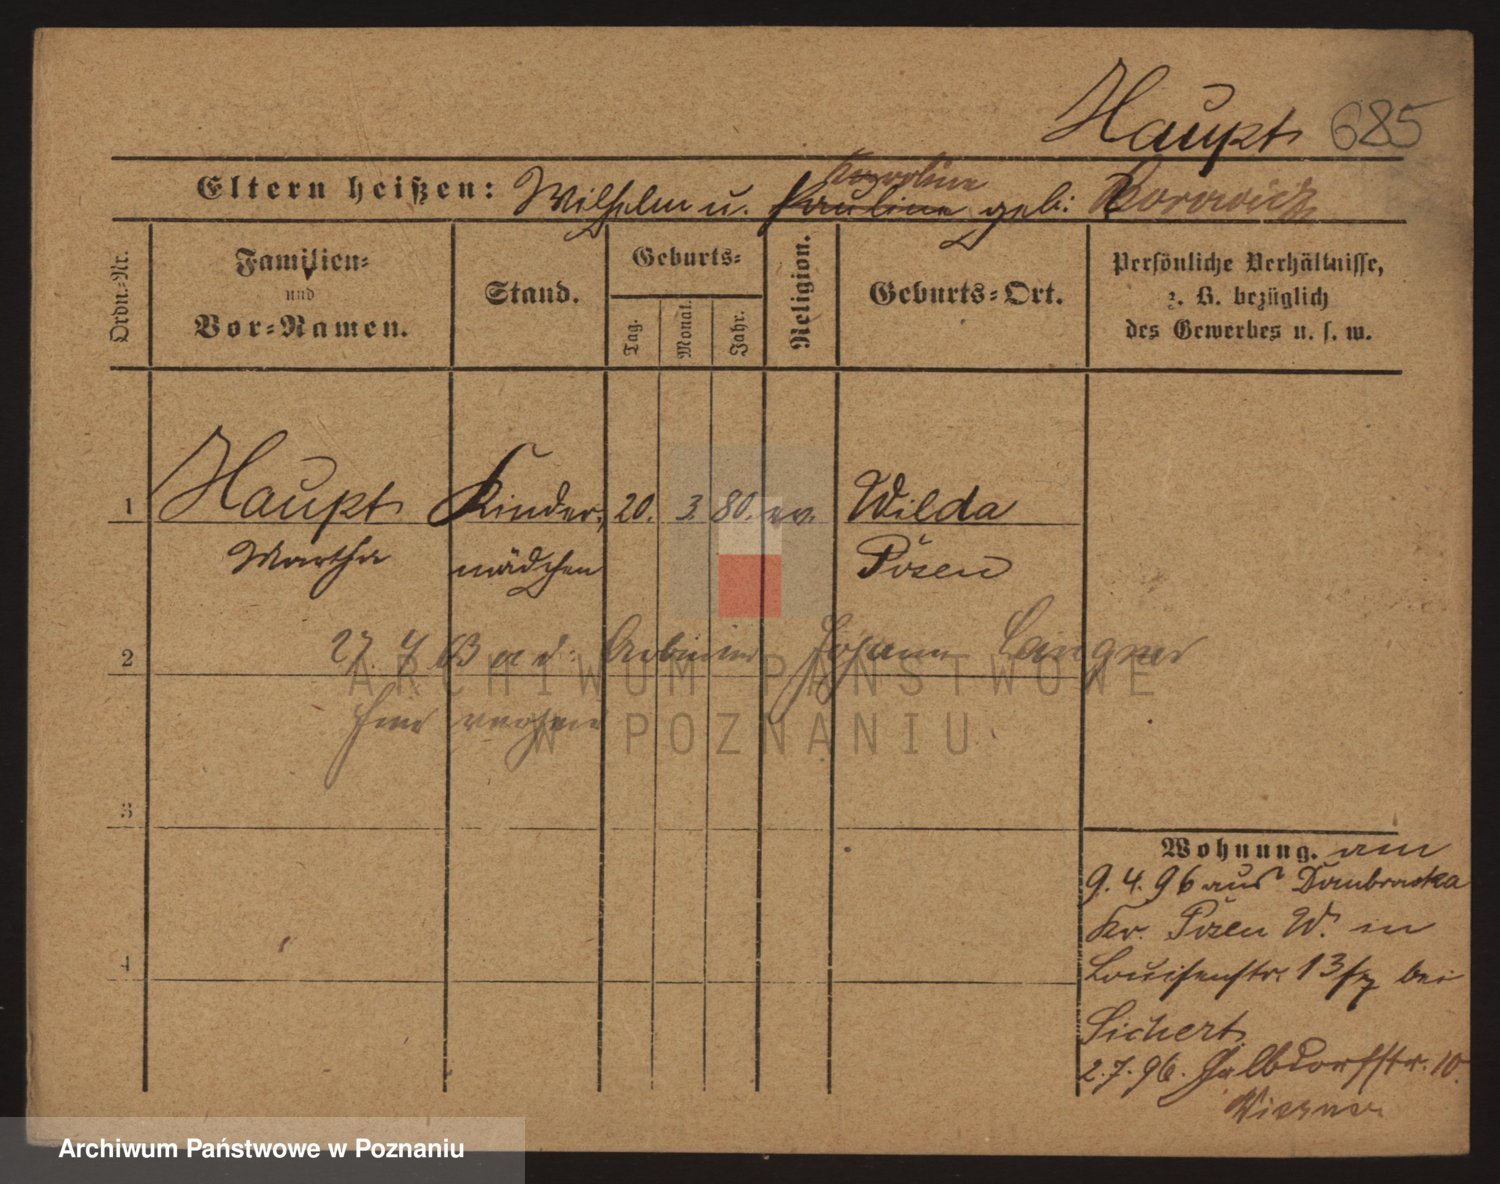 Haupt 685
Karoline
Eltern heißen: Wilhelm u. Pauline geb: Borowicz
Ordn.-Nr.
Familien-
und
Vor-Namen.
Stand.
Geburts-
Tag.
Monat.
Jahr.
Religion.
Geburts-Ort.
Persönliche Verhältnisse,
z. B. bezüglich
des Gewerbes u. s. w.
1 Haupt Kinder, 20. 3. 80. ev. Wilda
Martha mädchen Posen
2 27. 4. Johann Langner
ARCHIWUM PAŃSTWOWE
W POZNANIU
3
Wohnung. am
9. 4. 96 aus Dombrowka
Kr. Posen W. in
4
Louisenstr. 13 bei
Sichert
2. 7. 96. Halbdorfstr. 10.
Archiwum Państwowe w Poznaniu